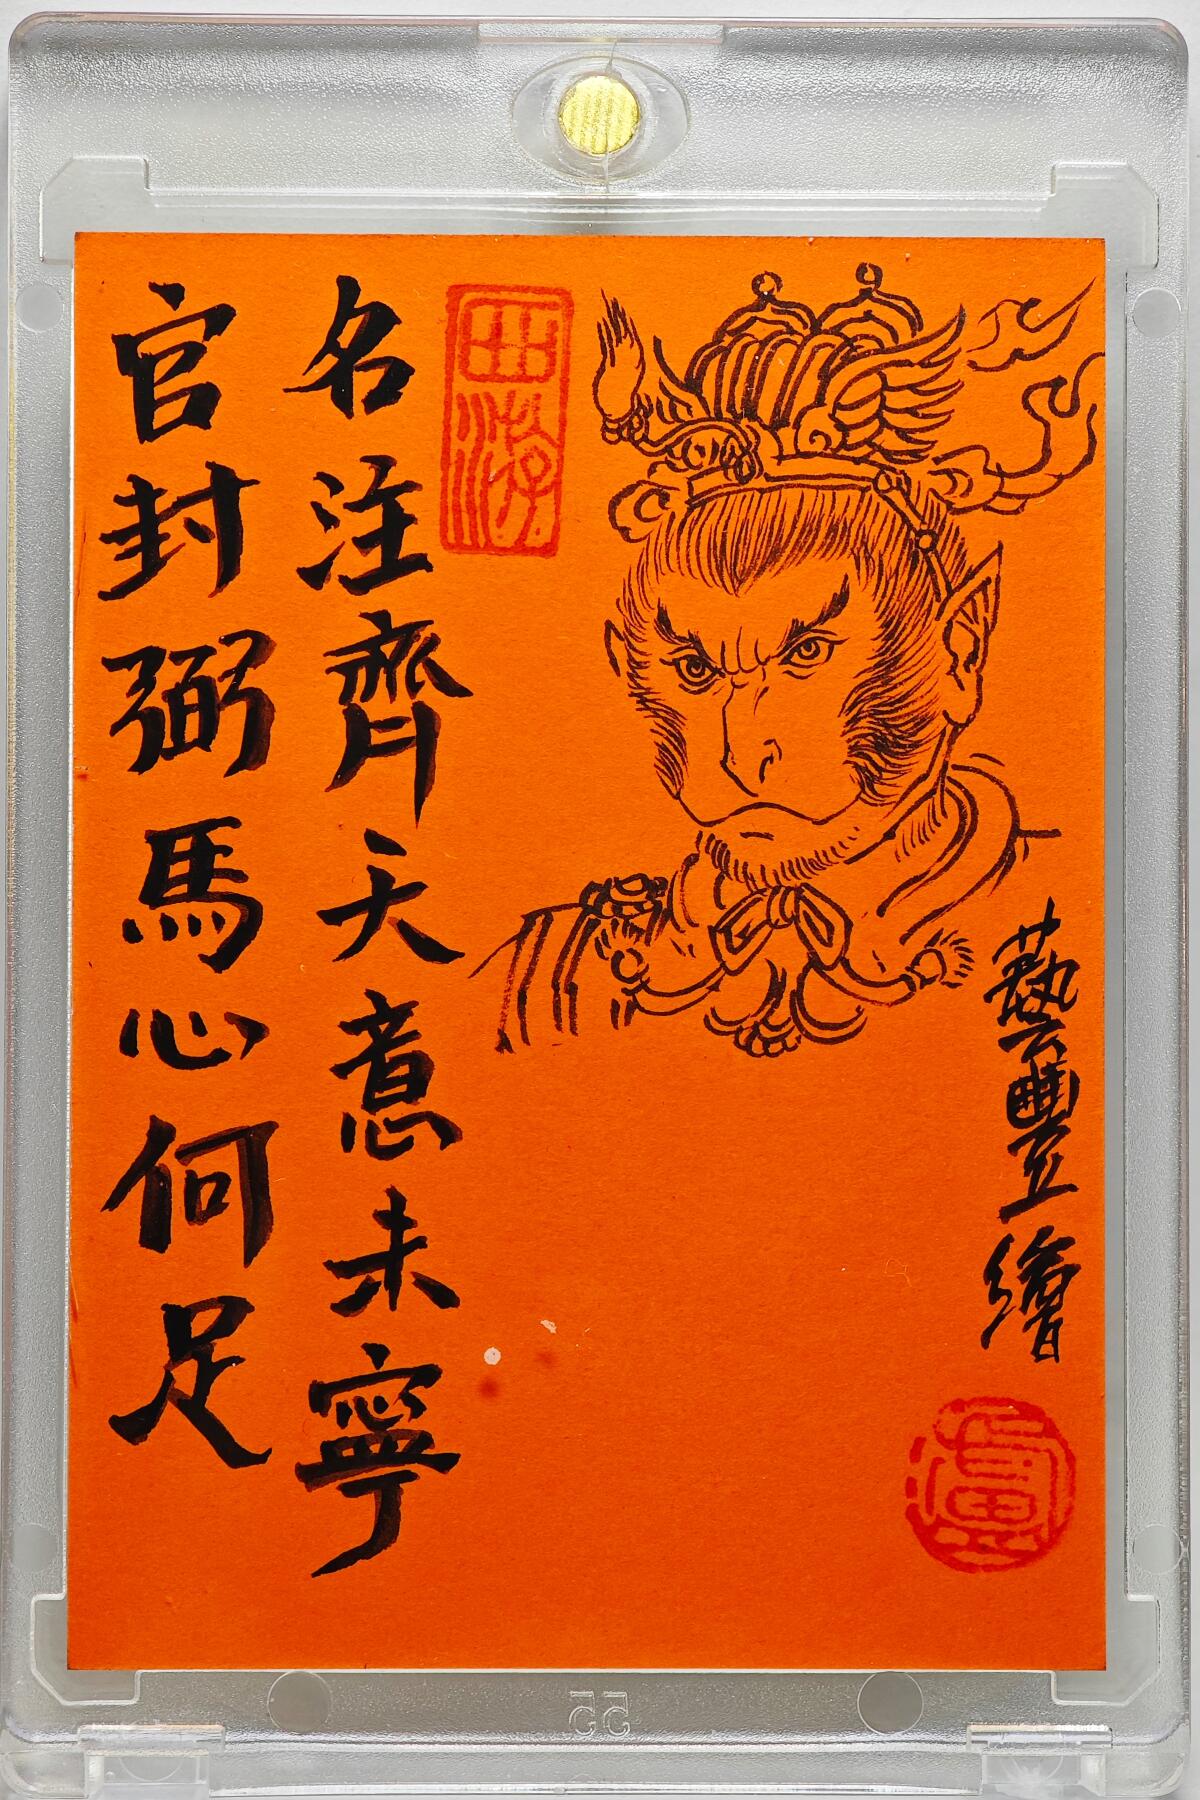 官封弼馬心何足
名注齊天意未寧
西游
藝豐繪